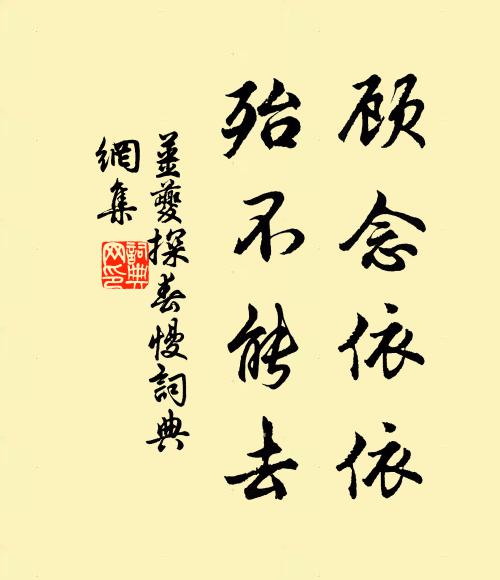 顾念依依
殆不能去
姜夔探春慢詞典
網集
詞典网印